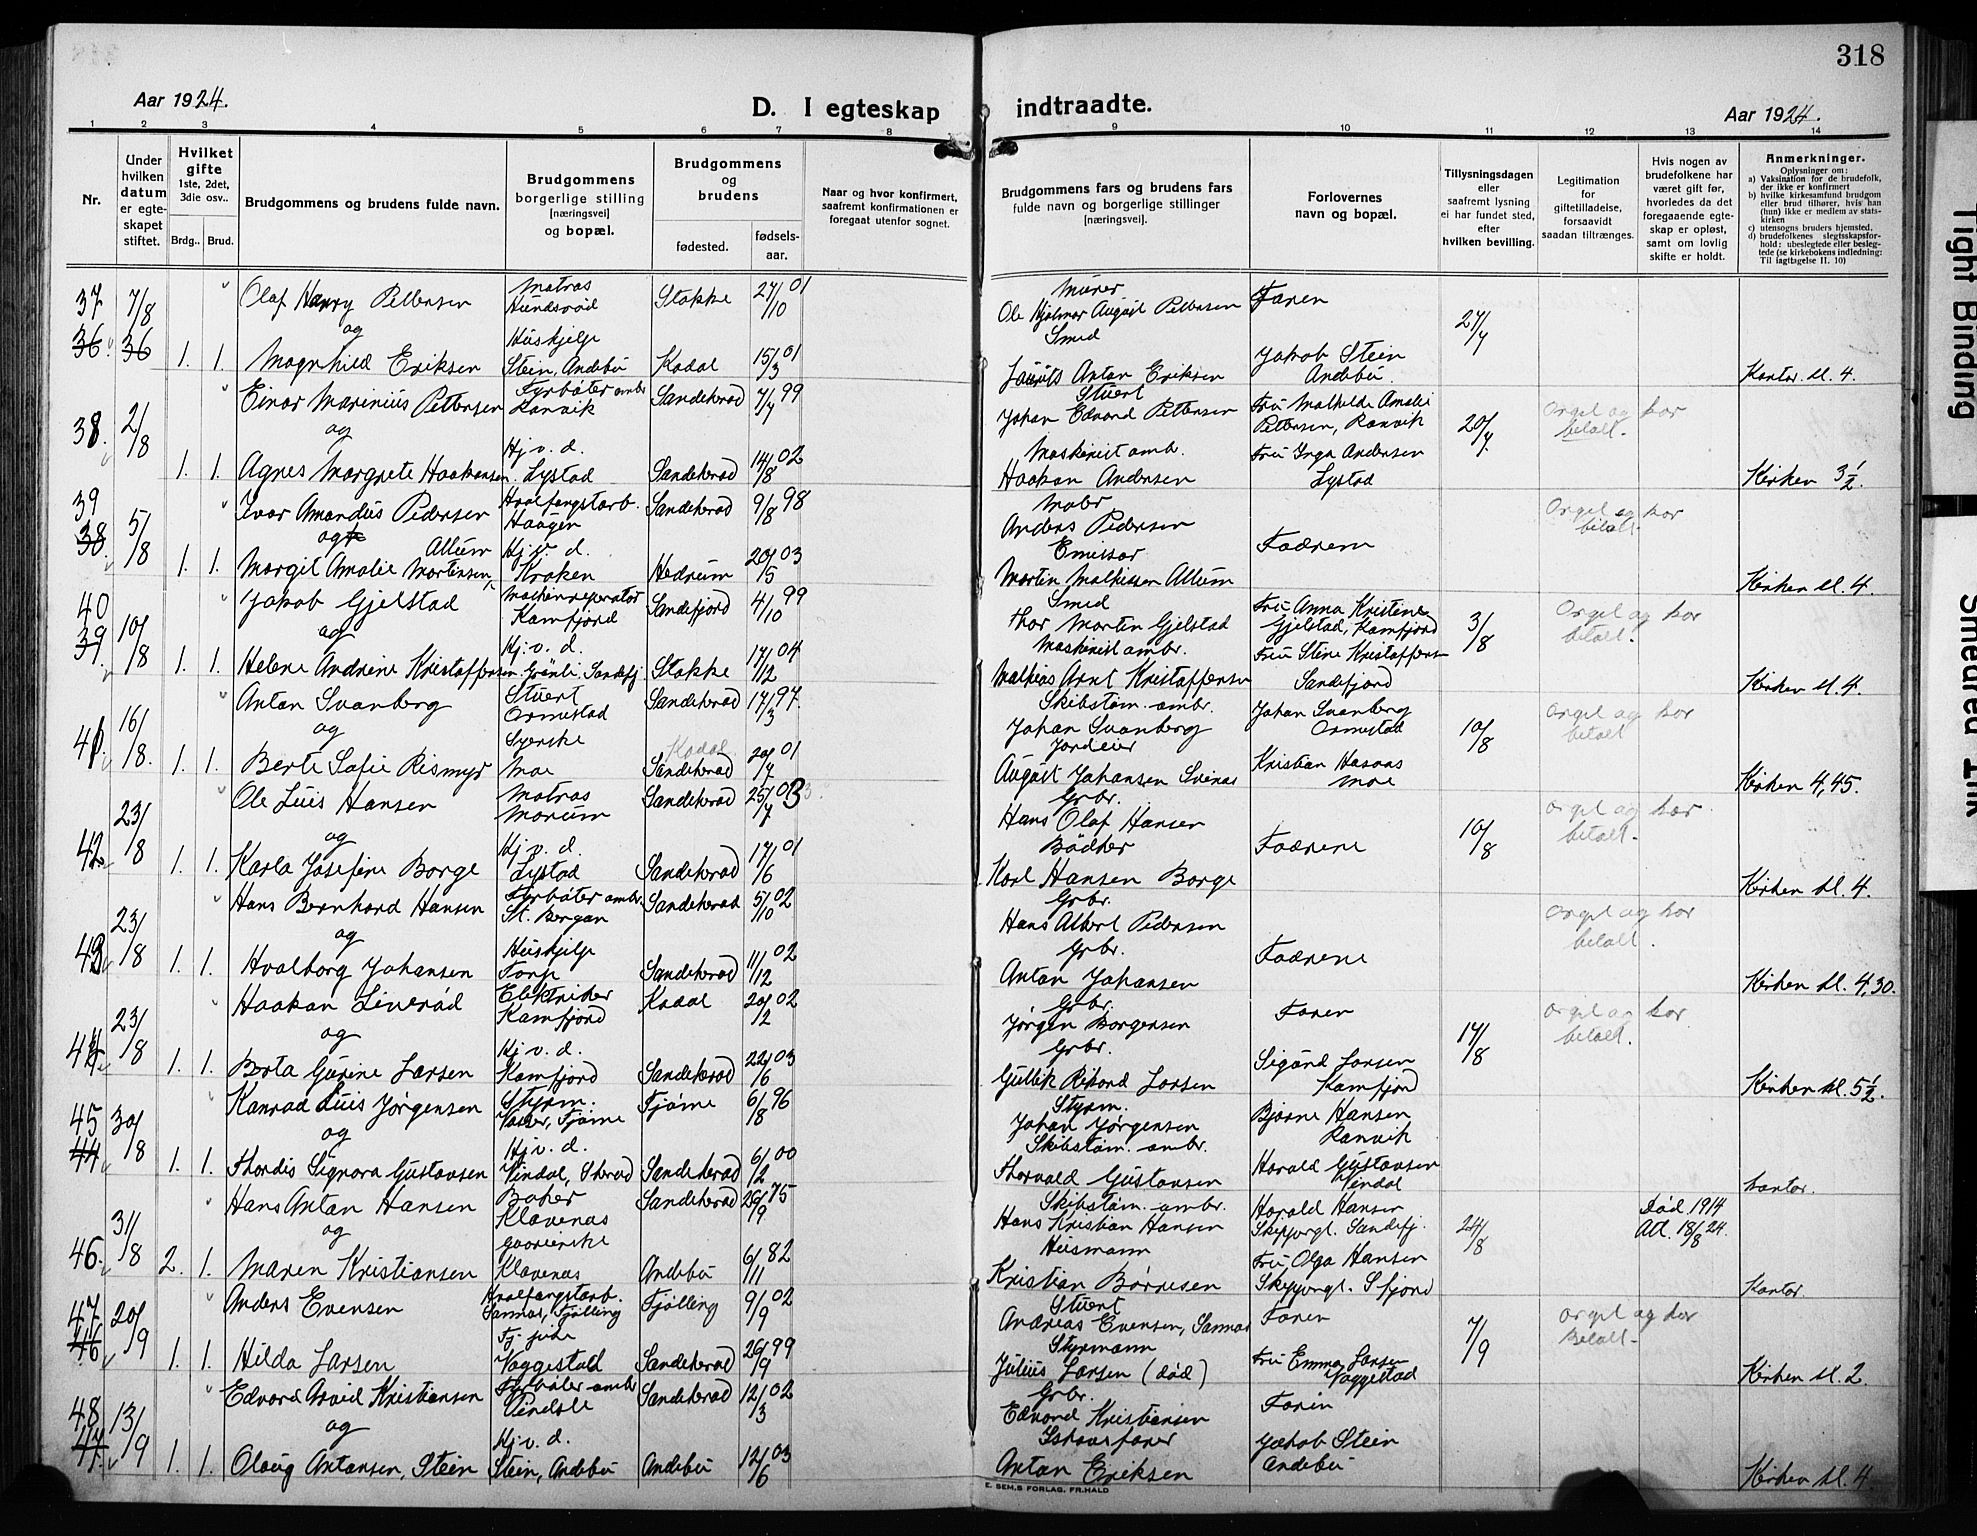 318
Aar 1924.
D. I egteskap indtraadte.
Aar 1924.
1 2 3 4 5 6 7 8 9 10 11 12 13 14
Nr.
Under hvilken datum er egte-skapet stiftet.
Hvilket gifte 1ste, 2det, 3die osv..
Brdg.. Brud.
Brudgommens og brudens fulde navn.
Brudgommens borgerlige stilling [næringsvei] og bopæl.
Brudgommens og brudens
fødested. fødsels-aar.
Naar og hvor konfirmert, saafremt konfirmationen er foregaat utenfor sognet.
Brudgommens fars og brudens fars fulde navn og borgerlige stillinger [næringsvei].
Forlovernes navn og bopæl.
Tillysningsdagen eller saafremt lysning ei har fundet sted, efter hvilken bevilling.
Legitimation for giftetilladelse, forsaavidt saadan tiltrænges.
Hvis nogen av brudefolkene har været gift før, hvorledes da det foregaaende egte-skap er opløst, samt om lovlig skifte er holdt.
Anmerkninger.
Oplysninger om:
a) Vaksination for de brudefolk, der ikke er konfirmert
b) hvilke kirkesamfund brudgom eller brud tilhører, hvis han (hun) ikke er medlem av stats-kirken
c) utensogns bruders hjemsted,
d) brudefolkenes slegtsskapsfor-hold: ubeslegtede eller besleg-tede (se kirkebokens indledning: Til iagttagelse II. 10)
37 7/8 Olaf Harry Pettersen Matros Hundsrød Stokke 27/10 01 Murer Ole Hjalmar August Pettersen Faren 27/7
36. 36 og
1. 1. Magnhild Eriksen Hushjelp Stein, Andebu Kodal 15/3 01 Smed Laurits Anton Eriksen Jakob Stein Andebu Kontor kl. 4.
38. 2/8 Einar Marinius Pettersen Fyrbøter ombr Ranvik Sandeherad 7/7 99 Stuert Johan Edvard Pettersen Fru Mathilde Amalie Pettersen, Ranvik 20/7. Orgel og kor betalt.
og
1. 1. Agnes Margrete Haakonsen Hj. v. d. Lystad Sandeherad 14/8 02 Maskinist omb. Haakon Andersen Fru Inga Andersen Lystad Kirken 3 1/2.
39 38 5/8 Ivar Amandus Pedersen Hvalfangstarb. Haugen Sandeherad 9/8 98 Anders Pedersen Fædrene Orgel og kor betalt
og
1. 1. Margit Amalie Mortensen, Allum Hj. v. d. Kraken Hedrum 20/5 03 Emissær Martin Mathissen Allum Kirken kl. 4.
40 39. 10/8 Jakob Gjelstad Maskinreperatør Kamfjord Sandefjord 4/10 99 Smed Thor Martin Gjelstad Fru Anna Kristine Gjelstad, Kamfjord 3/8 Orgel og kor betalt.
og
1. 1. Helene Andrine Kristoffersen Hj. v. d. Grønli, Sandefj. Stokke 17/12 04 Maskinist ombr. Mathias Arnt Kristoffersen Fru Stine Kristoffersen Sandefjord Kirken kl. 4.
41. 16/8. Anton Svanberg Stuert Ormestad Sandeherad 17/3 97. Skibstøm. ombr. Johan Svanberg Johan Svanberg Ormestad 10/8 Orgel og kor betalt
og
1. 1. Berte Sofie Rismyr Syerske Moe Kodal Sandeherad 20/7 01 Jordeier August Johansen Svinas Kristian Hasaas Moe Kirken 4,45.
42 23/8 Ole Luis Hansen Matros Marum Sandeherad 25/7 03 Grbr. Hans Olaf Hansen Fædrene 10/8 Orgel og kor betalt.
og
1. 1. Karla Josefine Borge Hj. v. d. Lystad Sandeherad 17/6 01 Bødker Karl Hansen Borge Kirken kl. 4.
43 23/8 Hans Bernhard Hansen Fyrbøter ombr. St. Bergan Sandeherad 5/10 02 Grbr. Hans Albert Pedersen Fædrene Orgel og kor betalt.
og
1. 1. Hvalborg Johansen Hushjelp Torp Sandeherad 11/12 02 Grbr. Anton Johansen Kirken kl. 4,30.
44 23/8 Haakon Liverød Elektriker Kamfjord Kodal 20/2 02 Grbr. Jørgen Borgersen Faren 17/8 Orgel og kor betalt.
og
1. 1. Berta Gurine Larsen Hj. v. d. Kamfjord Sandeherad 22/6 03 Grbr. Gullik Rikard Larsen Sigurd Larsen Kamfjord Kirken kl. 5 1/2.
45 44 30/8 Konrad Luis Jørgensen Styrm. Fjøme Tjøme 6/8 96 Styrm. Johan Jørgensen Bjarne Hansen Ranvik
og
1. 1. Thordis Signora Gustavsen Hj. v. d. Vindal, Sherad Sandeherad 6/2 00 Skibstøm. ombr. Thorvald Gustavsen Harald Gustavsen Vindal Kontor.
46. 31/8 Hans Anton Hansen Baker Klavenæs Sandeherad 26/9 75 Skibstøm. ombr. Hans Kristian Hansen Harald Hansen Skippergt. Sandefj. 24/8 Død. 1914 Att. 18/8 24.
og
2. 1. Maren Kristiansen Klavenæs Andebu 6/11 82 Husmann Kristian Børresen Fru Olga Hansen Skippergt. Sfjord Kontor.
47. 46 20/9 Anders Evensen Hvalfangstarb. Sannæs, Tjølling Tjølling 9/9 02 Stuert Andreas Evensen, Sannæs Faren 7/9 Orgel og kor Betalt.
1. 1. Hilda Larsen Vaggestad Sandeherad 26/9 99 Styrmann Julius Larsen (død) Fru Emma Larsen Vaggestad Kirken kl. 2.
48 47. 13/9 Edvard Arvid Kristiansen Fyrbøter ombr Vindsle Sandeherad 12/3 02 Grbr. Edvard Kristiansen Faren
og
1. 1. Olaug Antonsen, Stein Hj. v. d. Stein, Andebu Andebu 12/6 03 Ishavsfarer Anton Eriksen Jakob Stein Andebu Kirken kl. 4.
E. SEM.S FORLAG, FR.HALD
Tight Binding
Smeared Ink